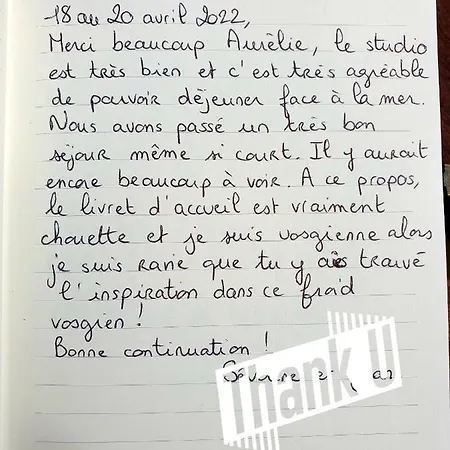 18 au 20 avril 2022,
Merci beaucoup Aurélie, le studio
est très bien et c'est très agréable
de pouvoir déjeuner face à la mer.
Nous avons passé un très bon
séjour même si court. Il y aurait
encore beaucoup à voir. A ce propos,
le livret d'accueil est vraiment
chouette et je suis vosgienne alors
je suis ravie que tu y aies trouvé
l'inspiration dans ce froid
vosgien !
Bonne continuation !
Thank U